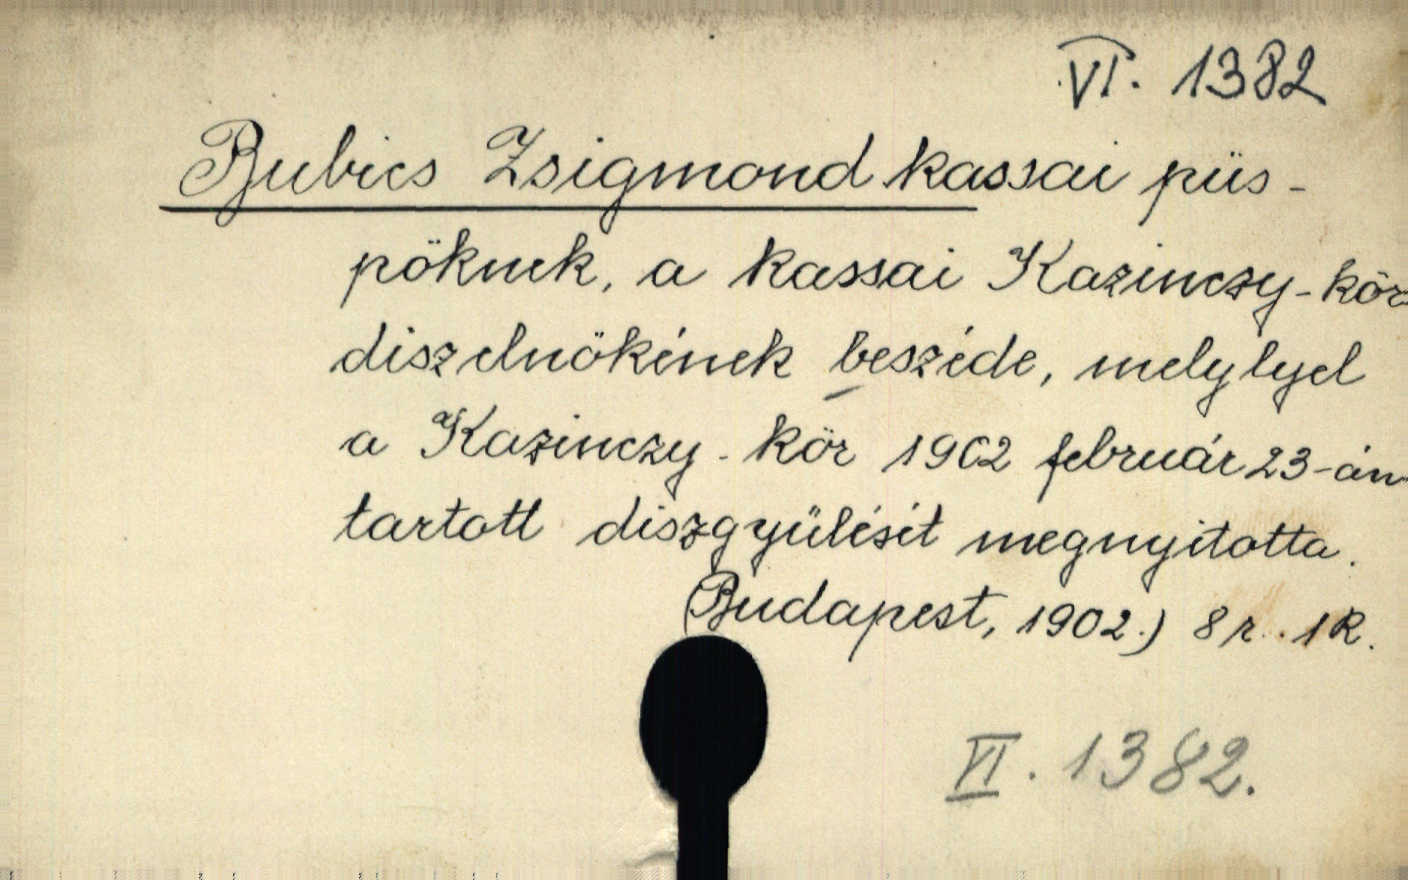 VI. 1382
Bubics Zsigmond kassai püs-
pöknek, a kassai Kazinczy-kör
diszelnökének beszéde, melylyel
a Kazinczy-kör 1902 február 23-án
tartott diszgyülését megnyitotta.
(Budapest, 1902.) 8 r. 1 R.
VI. 1382.